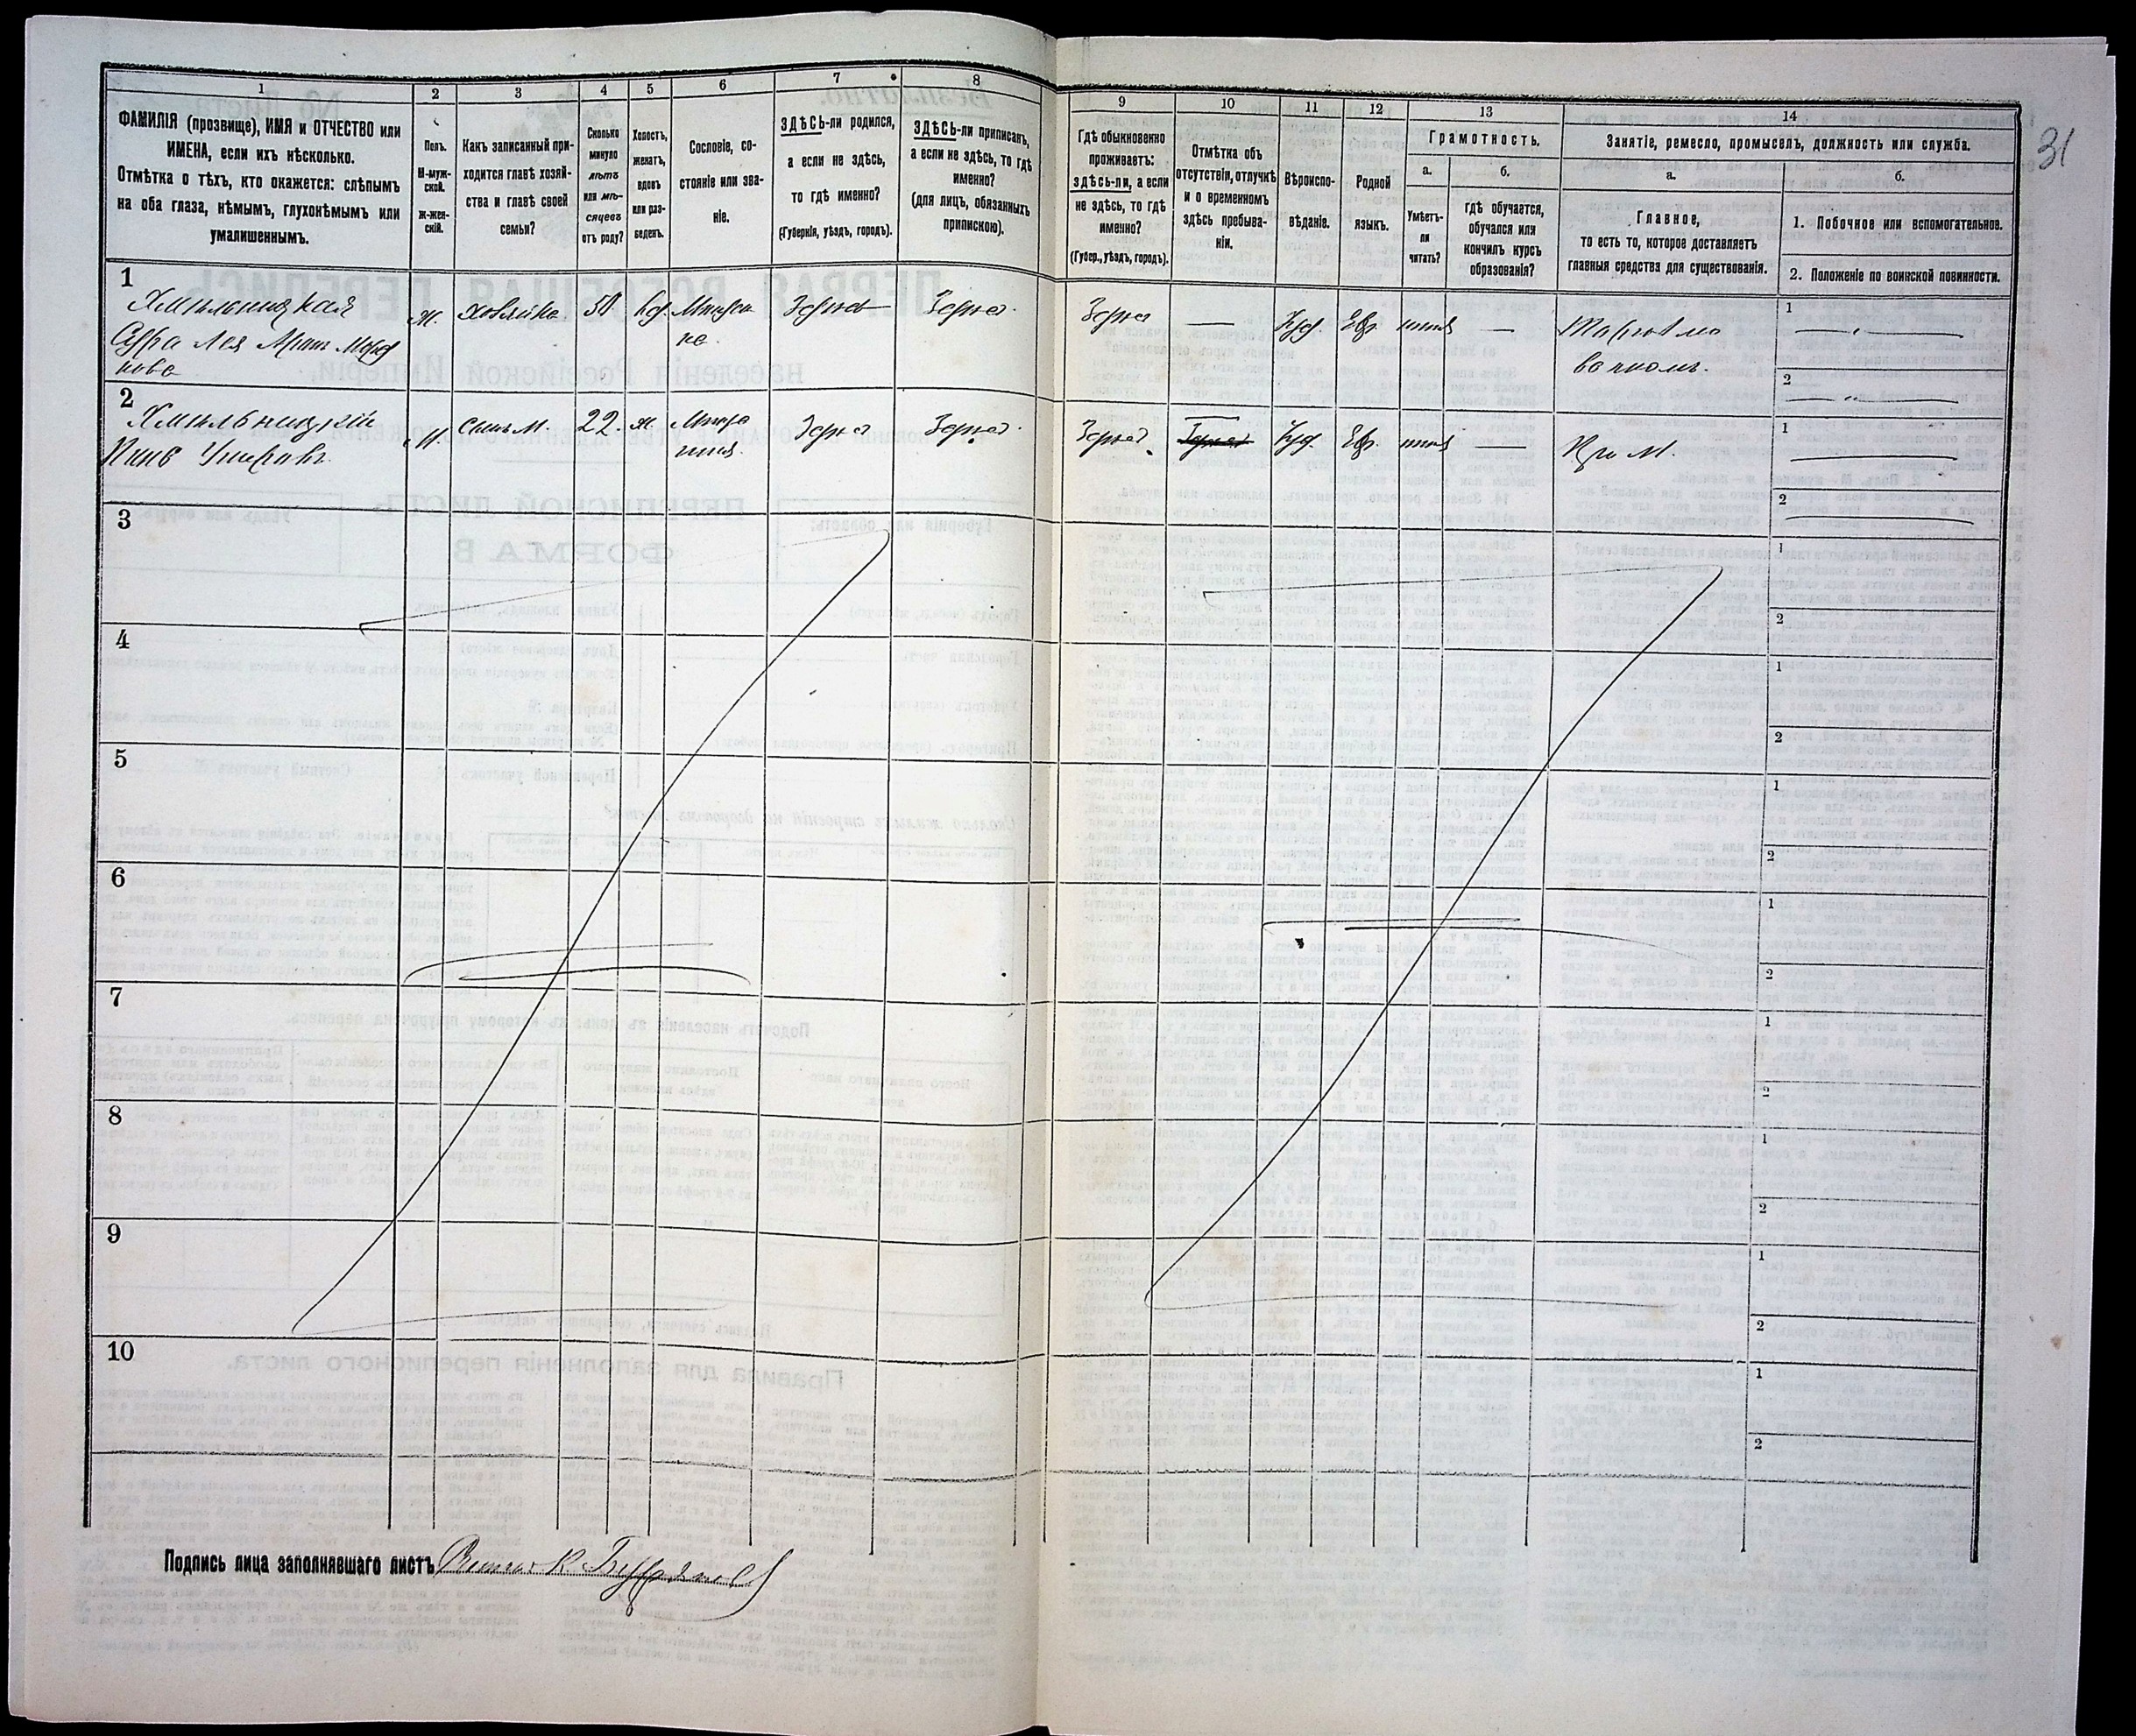 31
1
2
3
4
5
6
7
8
9
10
11
12
13
14
ФАМИЛІЯ (прозвище), ИМЯ и ОТЧЕСТВО или
ИМЕНА, если ихъ нѣсколько.
Отмѣтка о тѣхъ, кто окажется: слѣпымъ
на оба глаза, нѣмымъ, глухонѣмымъ или
умалишеннымъ.
Полъ.
М-муж-
ской.
ж-жен-
скій.
Какъ записанный при-
ходится главѣ хозяй-
ства и главѣ своей
семьи?
Сколько
минуло
лѣтъ
или мѣ-
сяцевъ
отъ роду?
Холостъ,
женатъ,
вдовъ
или раз-
веденъ.
Сословіе, со-
стояніе или зва-
ніе.
ЗДѢСЬ-ли родился,
а если не здѣсь,
то гдѣ именно?
(Губернія, уѣздъ, городъ).
ЗДѢСЬ-ли приписанъ,
а если не здѣсь, то гдѣ
именно?
(для лицъ, обязанныхъ
припискою).
Гдѣ обыкновенно
проживаетъ:
здѣсь-ли, а если
не здѣсь, то гдѣ
именно?
(Губер., уѣздъ, городъ).
Отмѣтка объ
отсутствіи, отлучкѣ
и о временномъ
здѣсь пребыва-
ніи.
Вѣроиспо-
вѣданіе.
Родной
языкъ.
Грамотность.
а.
Умѣетъ-
ли
читать?
б.
гдѣ обучается,
обучался или
кончилъ курсъ
образованія?
Занятіе, ремесло, промыселъ, должность или служба.
а.
Главное,
то есть то, которое доставляетъ
главныя средства для существованія.
б.
1. Побочное или вспомогательное.
2. Положеніе по воинской повинности.
1
Хмильницкая
Сура Лея
ж. Хозяйка 50 Здѣсь Здѣсь
Здѣсь — Іуд. Евр. —
1
2
2
Хмильницкій
м. сынъ 22. Здѣсь Здѣсь
Здѣсь Іуд. Евр. — При М.
1
2
3
1
2
4
1
2
5
1
2
6
1
2
7
1
2
8
1
2
9
1
2
10
1
2
Подпись лица заполнявшаго листъ